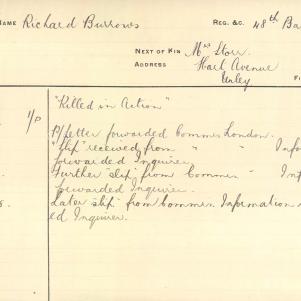 NAME Richard Burrows REG. &C. 48th Ba
NEXT OF KIN Mrs Storr
ADDRESS Hart Avenue
Unley
"Killed in Action"
P/letter forwarded Commrs London.
"Slip" received from " " Info
forwarded Inquirer
Further "slip" from Commrs " Inf
forwarded Inquirer.
Later "slip" from Commrs. Information
ed Inquirer.